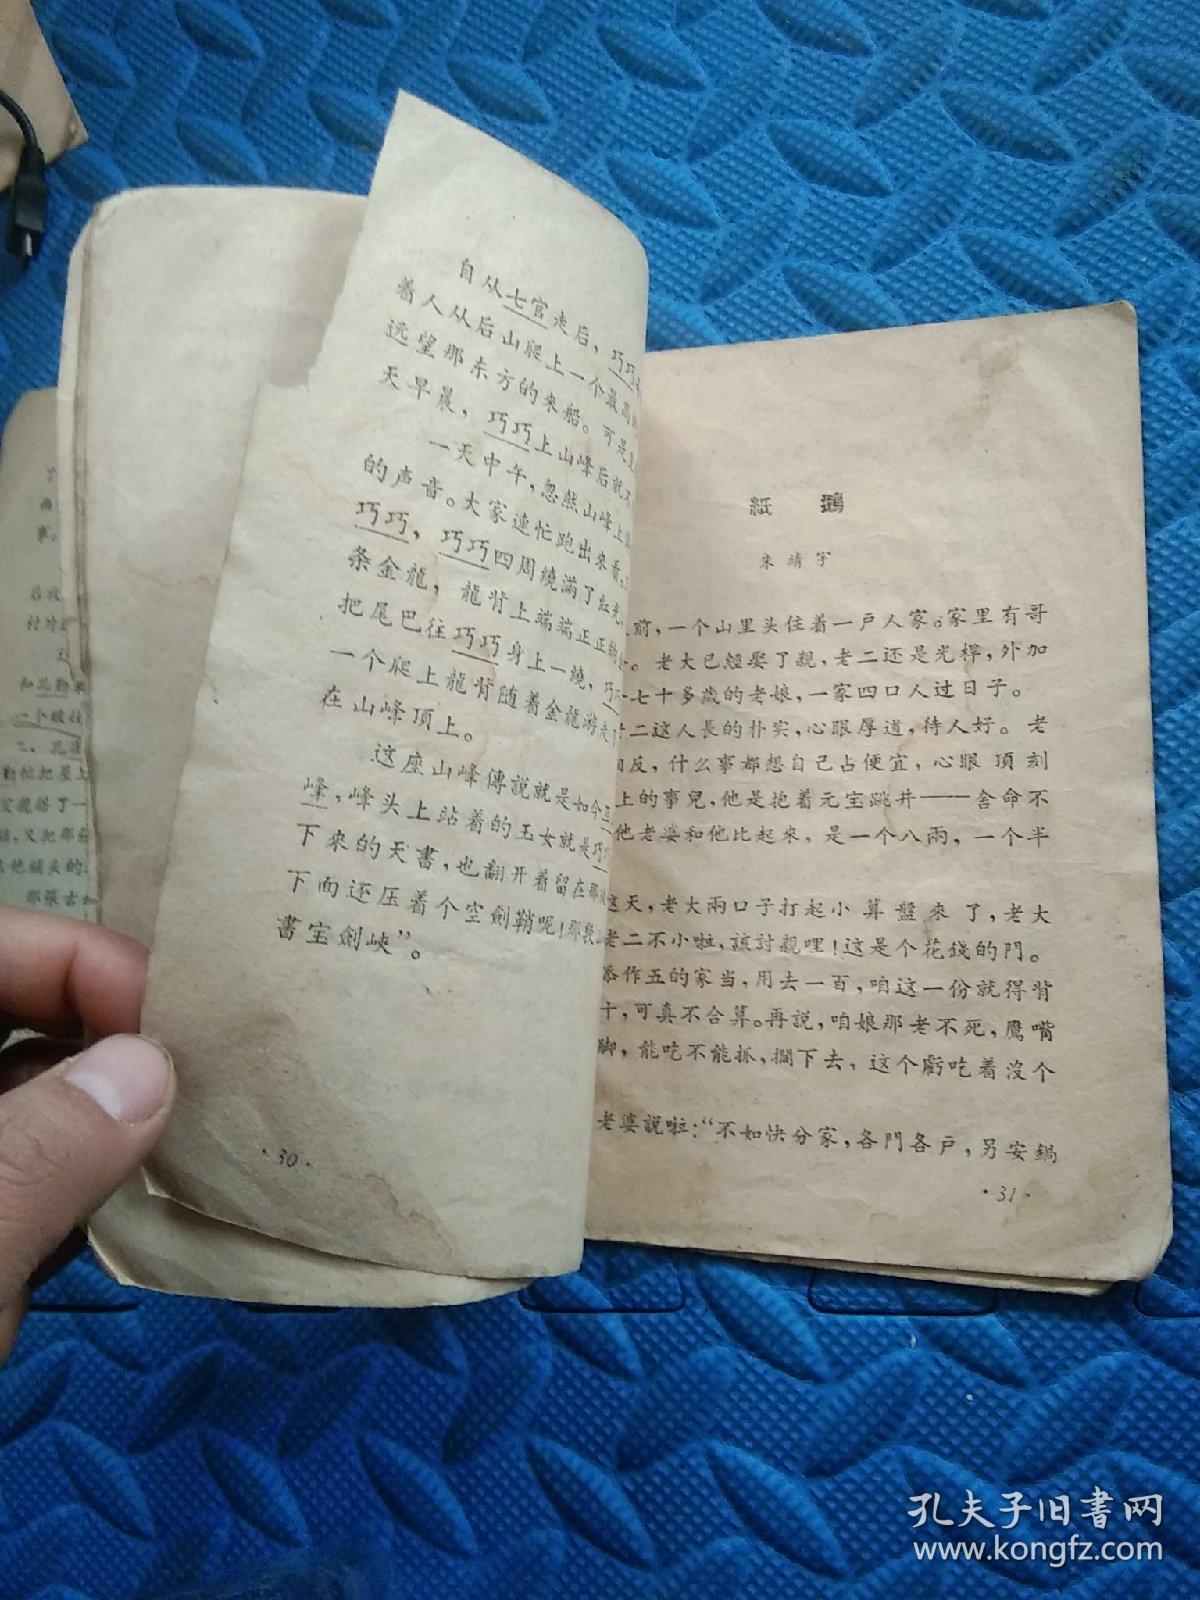 自从七官走后、巧巧
着人从后山爬上一个最高
远望那东方的来船。可是
天早晨，巧巧上山峰后就
一天中午，忽然山峰上
的声音。大家連忙跑出来看
巧巧、巧巧四周繞滿了紅光
条金龍，龍背上端端正正的
把尾巴往巧巧身上一繞，巧
一个爬上龍背随着金龍游走
在山峰頂上。
这座山峰傳說就是如今
峰，峰头上站着的玉女就是巧
下来的天書，也翻开着留在那
下面还压着个空劍鞘呢！那
書宝劍峽”。
·30·
紙 鷂
朱靖宇
前，一个山里头住着一戶人家。家里有哥
。老大已經娶了親，老二还是光桿，外加
七十多歲的老娘，一家四口人过日子。
二这人長的朴实，心眼厚道，待人好。老
反，什么事都想自己占便宜，心眼頂刻
上的事兒，他是抱着元宝跳井——舍命不
他老婆和他比起来，是一个八兩，一个半
这天，老大兩口子打起小算盤來了，老大
老二不小啦，該討親哩！这是个花錢的門。
添作五的家当，用去一百，咱这一份就得背
十，可真不合算。再說，咱娘那老不死，鹰嘴
脚，能吃不能抓，擱下去，这个虧吃着沒个
老婆説啦：“不如快分家，各門各戶，另安鍋
·31·
事。
村
和孔勤
一个破
勤忙把屋上
父親搭了一
那張古
孔夫子旧書网
www.kongfz.com